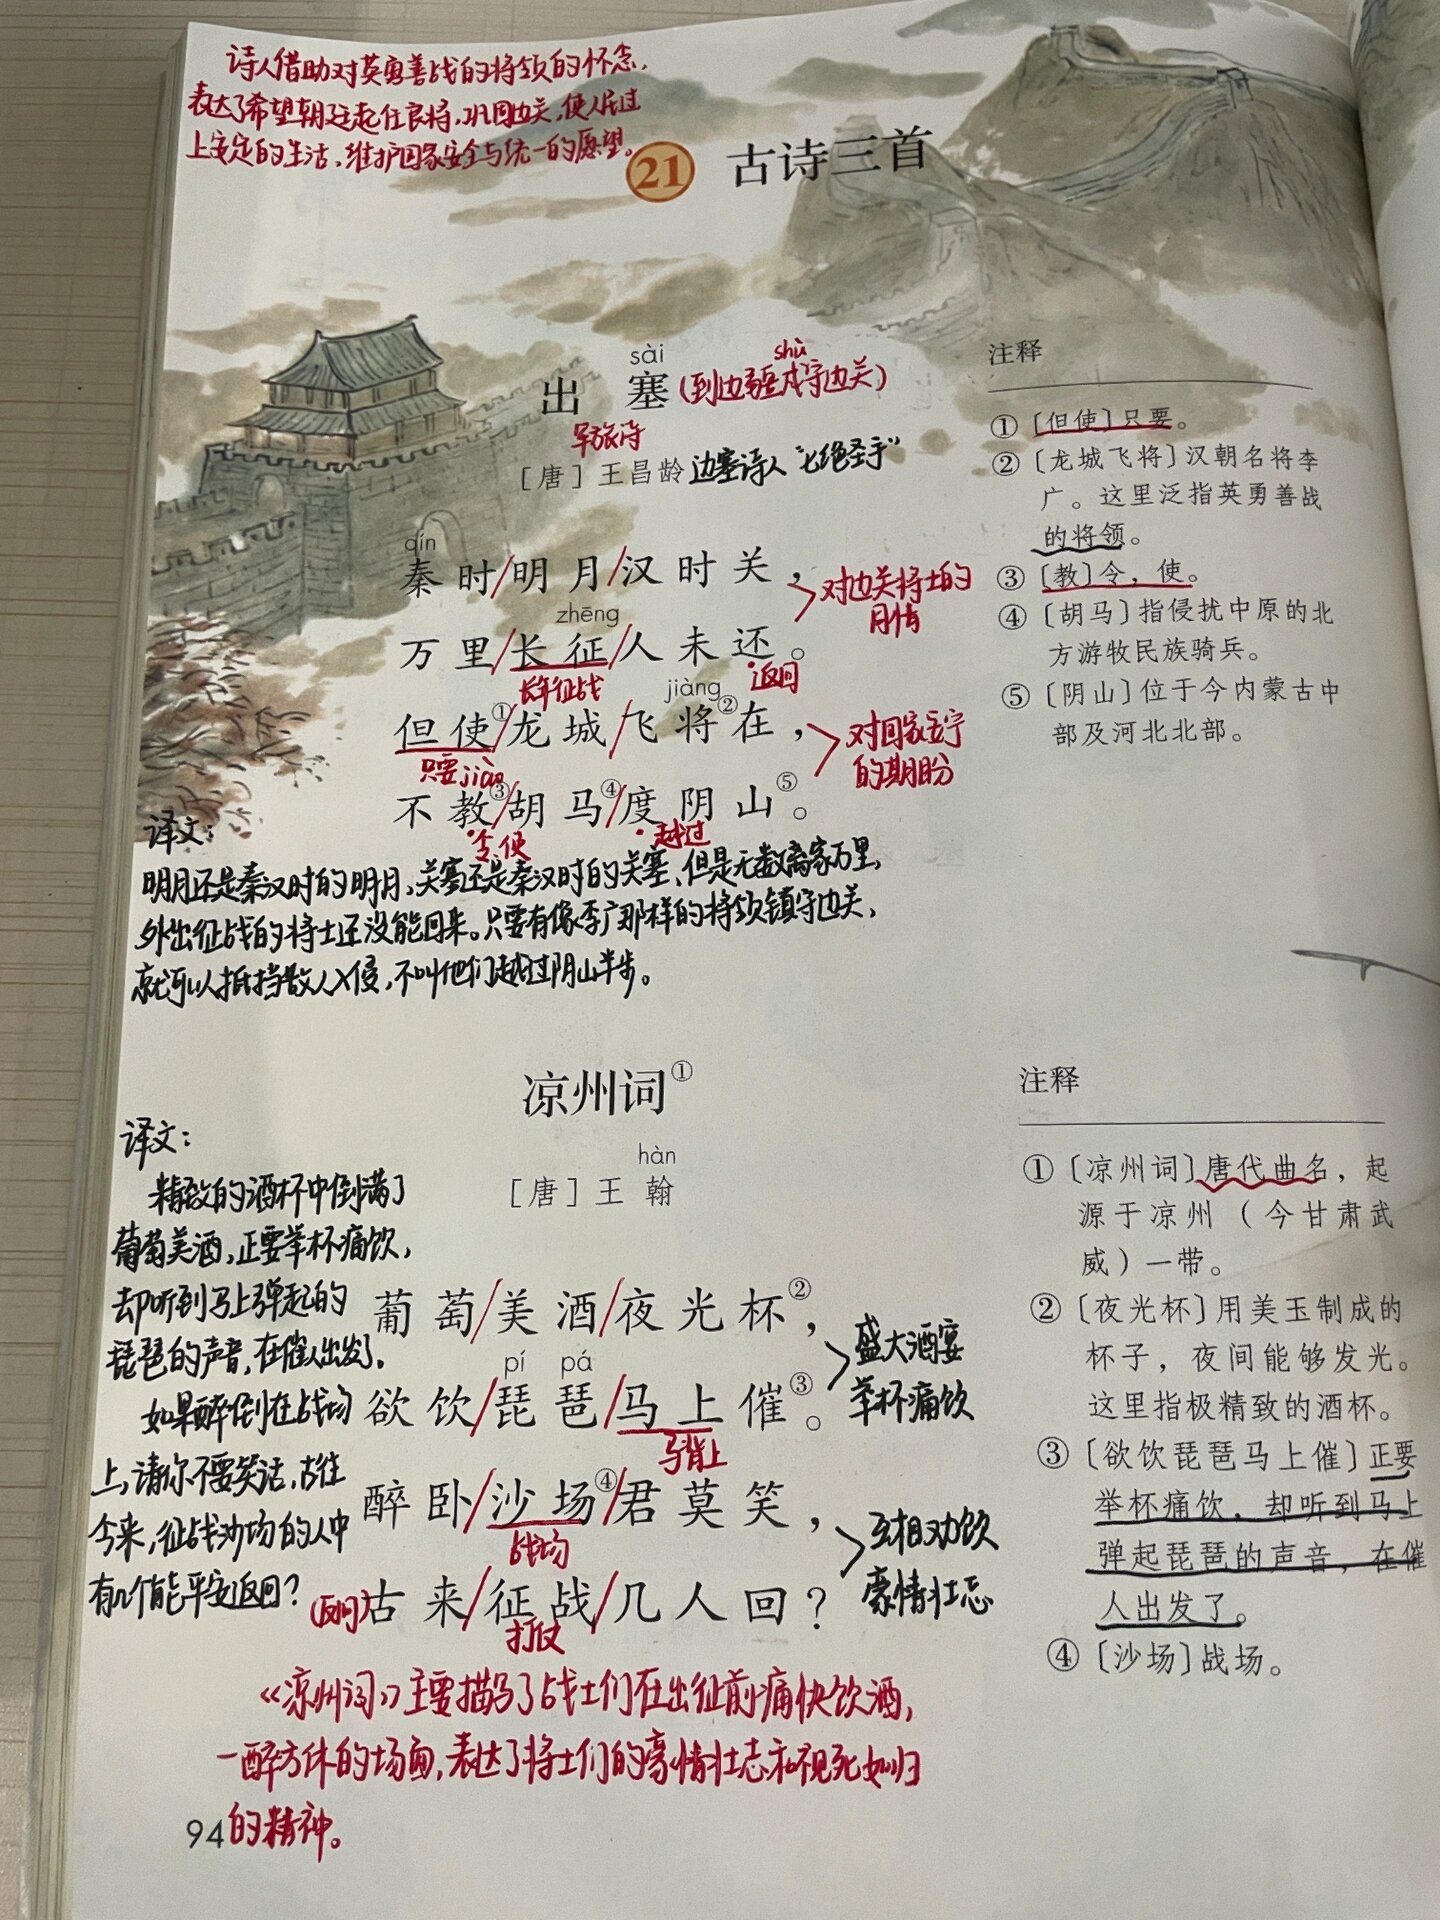 诗人借助对英勇善战的将领的怀念,
表达了希望朝廷起任良将,巩固边关,使人民过
上安定的生活,维护国家安全与统一的愿望。
21 古诗三首
sài
shù
出塞(到边疆戍守边关)
军旅诗
[唐]王昌龄 边塞诗人“七绝圣手”
qín
秦时/明月/汉时关,
对边关将士的
同情
zhēng
万里/长征/人未还。
长年征战
返回
jiàng
但使①/龙城/飞将②在,
只要
对国家安宁
的期盼
jiào
不教③/胡马④/度阴山⑤。
令,使
越过
译文:
明月还是秦汉时的明月,关塞还是秦汉时的关塞,但是无数离家万里,
外出征战的将士还没能回来。只要有像李广那样的将领镇守边关,
就可以抵挡敌人入侵,不叫他们越过阴山半步。
注释
①〔但使〕只要。
②〔龙城飞将〕汉朝名将李
广。这里泛指英勇善战
的将领。
③〔教〕令,使。
④〔胡马〕指侵扰中原的北
方游牧民族骑兵。
⑤〔阴山〕位于今内蒙古中
部及河北北部。
凉州词①
hàn
[唐]王翰
译文:
精致的酒杯中倒满了
葡萄美酒,正要举杯痛饮,
却听到马上弹起的
琵琶的声音,在催人出发了。
如果醉倒在战场
上,请你不要笑话,古往
今来,征战沙场的人中
有几个能平安返回?
葡萄/美酒/夜光杯②,
pí pá
欲饮/琵琶/马上催③。
马背上
盛大酒宴
举杯痛饮
醉卧/沙场④/君莫笑,
战场
(反问)古来/征战/几人回?
打仗
互相劝饮
豪情壮志
《凉州词》主要描写了战士们在出征前痛快饮酒,
一醉方休的场面,表达了将士们的豪情壮志和视死如归
的精神。
94
注释
①〔凉州词〕唐代曲名,起
源于凉州(今甘肃武
威)一带。
②〔夜光杯〕用美玉制成的
杯子,夜间能够发光。
这里指极精致的酒杯。
③〔欲饮琵琶马上催〕正要
举杯痛饮,却听到马上
弹起琵琶的声音,在催
人出发了。
④〔沙场〕战场。